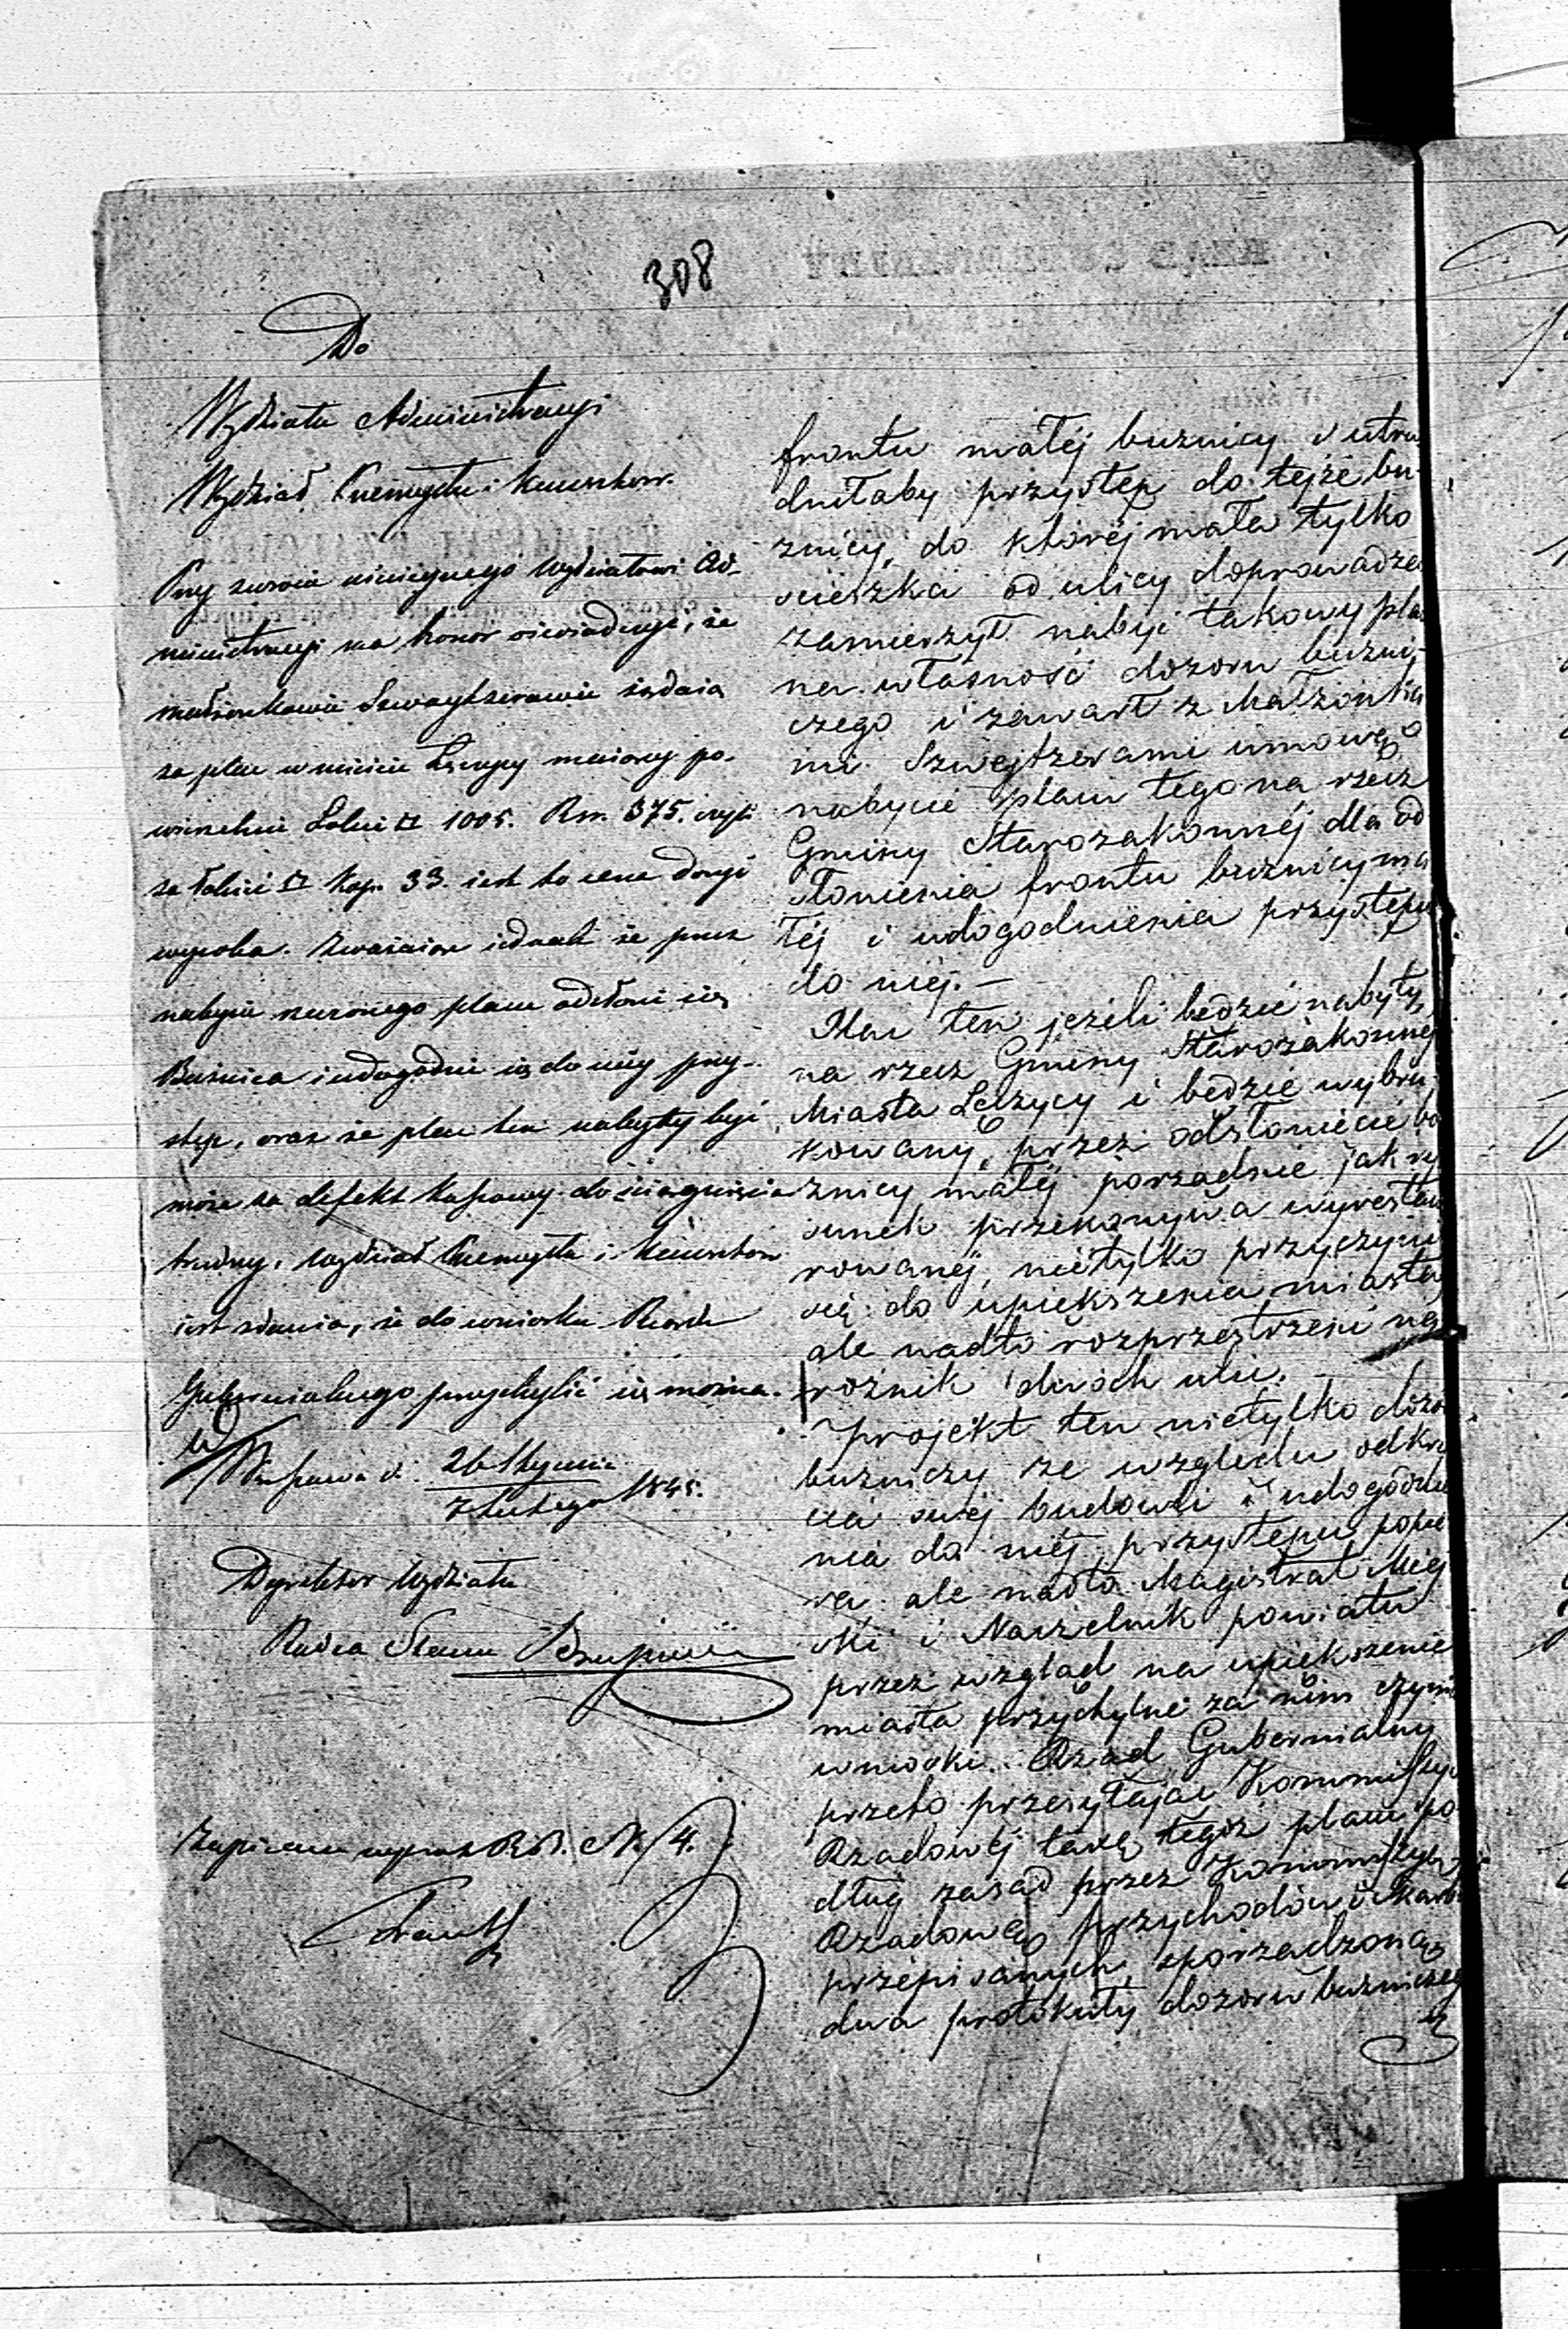 308
Do
Wydziału Administracyi
Wydział Przemysłu i Kunsztow.
Przy zwrocie niniejszego Wydziałowi Ad-
ministracyi ma honor oświadczyć, że
małżonkowie Szwaytzerowie żądaią
za plac w mieście Łęczycy maiący po-
wierzchni Łokci □ 1005. Rsr. 375. czyli
za łokieć □ Kop. 33. iest to cena dosyć
wysoka. Zważaiąc iednak że przez
nabycie rzeczonego placu odsłoni się
Bużnica i udogodni się do niéy przy-
stęp, oraz że plac ten nabyty być
może za defekt kassowy do ściągnięcia
trudny, Wydział Przemysłu i Kunsztow
iest zdania, że do wniosku Rządu
Gubernialnego przychylić się można.
w Warszawie d. 26 Stycznia
7 Lutego 1845.
Dyrektor Wydziału
Radca Stanu
Zapisano wprost R.B. N. 4.
frontu małéj bużnicy i utru-
dniłaby przystęp do tejże bu-
żnicy, do któréj mała tylko
ścieszka od ulicy doprowadza
zamierzył nabyć takowy plac
na własność dozoru bużni-
czego i zawarł z Małżonka
mi Szwejtzerami umowę o
nabycie placu tego na rzecz
Gminy Starozakonnéj dla od
słonienia frontu bużnicy ma
łéj i udogodnienia przystępu
do niéj. —
Plac ten jeżeli będzie nabyty
na rzecz Gminy Starozakonnéj
Miasta Łęczycy i będzie wybru
kowany, przez odsłonięcie bu
żnicy małéj porządnie jak ry
sunek przekonywa wyrestau
rowanéj, nietylko przyczyni
się do upiększenia miasta,
ale nadto rozprzestrzeni na
rożnik dwóch ulic.
Projekt ten nietylko dozór
bużniczy ze względu odkry
cia swéj budowli i udogodnie
nia do niéj przystępu popie
ra ale nadto Magistrat Miej
ski i Naczelnik powiatu
przez wzgląd na upiększenie
miasta przychylne za nim czynią
wnioski. Rząd Gubernialny
przeto przesyłając Kommissyi
Rządowéj taxę tegoż placu po
dług zasad przez Kommissyą
Rządową przychodów i skarbu
przepisanych, sporządzoną,
dwa protokuły dozoru bużniczego